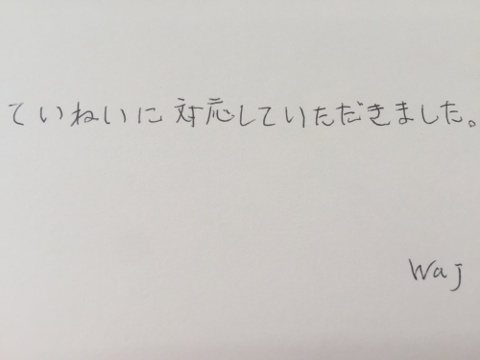 ていねいに対応していただきました。
Waj